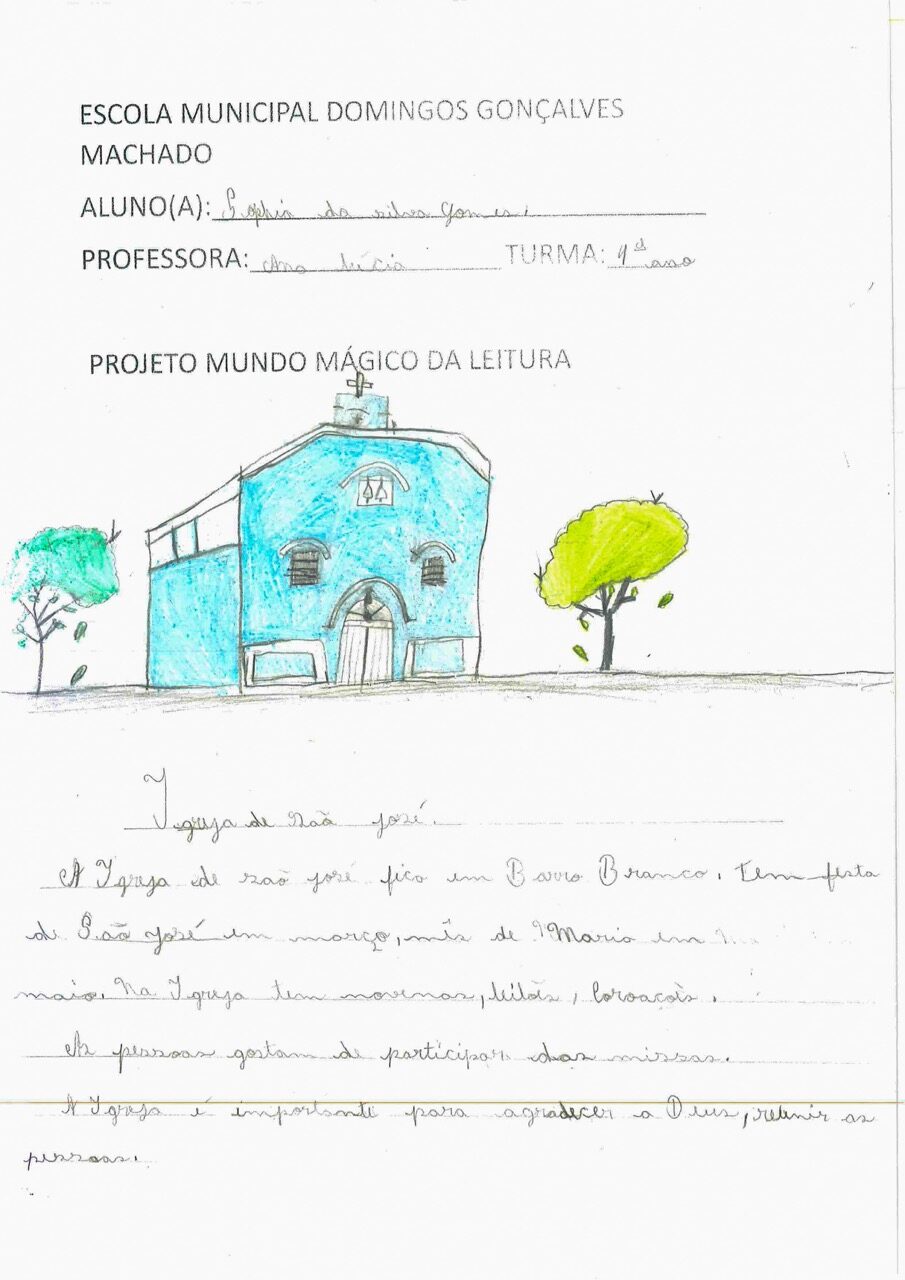 ESCOLA MUNICIPAL DOMINGOS GONÇALVES
MACHADO
ALUNO(A): Sophia da silva gomes.
PROFESSORA: Ana Lúcia TURMA: 4º ano
PROJETO MUNDO MÁGICO DA LEITURA
Igreja de são josé.
A Igreja de são josé fica em Barro Branco. Tem festa
de São José em março, mês de Maria em
maio. Na Igreja tem novenas, leilões, Coroações.
As pessoas gostam de participar das missas.
A Igreja é importante para agradecer a Deus, reunir as
pessoas.